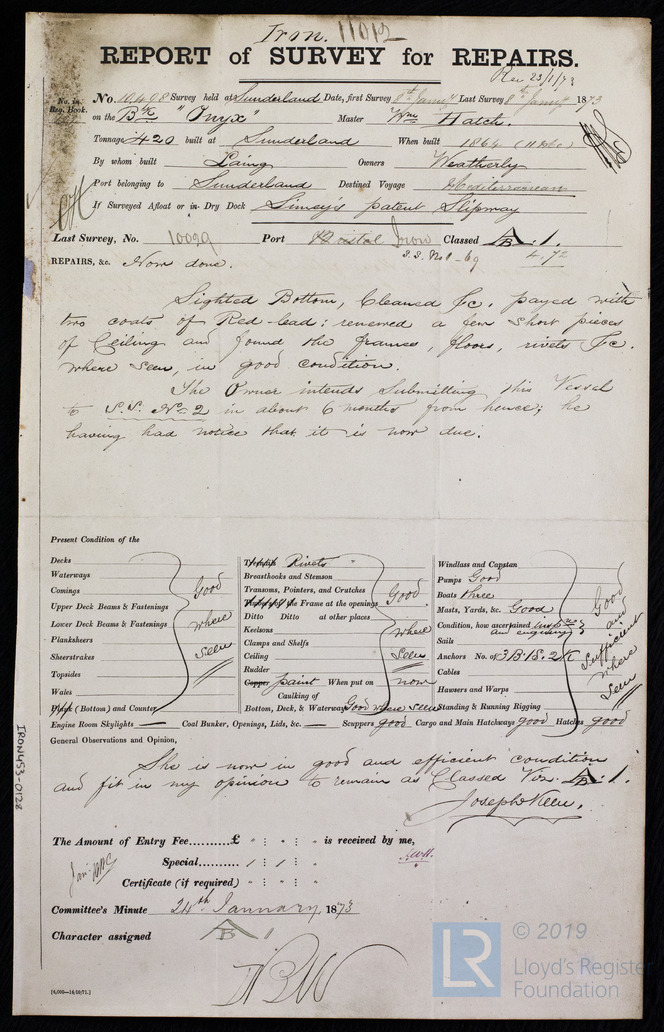 Iron. 11012
REPORT of SURVEY for REPAIRS.
Rec 23/1/73
No. in Reg. Book.
No. 10408 Survey held at Sunderland Date, first Survey 8th Jany Last Survey 8th Jany 1873
on the Bk "Onyx" Master Wm Hatch.
Tonnage 420 built at Sunderland When built 1864
By whom built Laing Owners Weatherley
Port belonging to Sunderland Destined Voyage Mediterranean
If Surveyed Afloat or in Dry Dock Limey's patent Slipway
Last Survey, No. 10029 Port Bristol Iron Classed A/B. 1.
S.S. No 1 - 69 4.72
REPAIRS, &c. Now done.
Sighted Bottom, Cleaned &c. payed with
two coats of Red-lead: renewed a few short pieces
of Ceiling and found the frames, floors, rivets &c.
where seen, in good condition.
The Owner intends submitting this Vessel
to S.S. No 2 in about 6 months from hence; he
having had notice that it is now due.
Present Condition of the
Decks
Waterways
Comings
Upper Deck Beams & Fastenings
Lower Deck Beams & Fastenings
Planksheers
Sheerstrakes
Topsides
Wales
Plank (Bottom) and Counter
Good where seen
Rivets
Breasthooks and Stemson
Transoms, Pointers, and Crutches
the Frame at the openings
Ditto Ditto at other places
Keelsons
Clamps and Shelfs
Ceiling
Rudder
Good where seen
Copper paint When put on now
Caulking of
Bottom, Deck, & Waterways Good where seen
Windlass and Capstan
Pumps Good
Boats three
Masts, Yards, &c. Good
Condition, how ascertained insp.
and enquiry
Sails
Anchors No. of 3B.1S.2K
Cables
Hawsers and Warps
Standing & Running Rigging
Good and sufficient where seen
Engine Room Skylights — Coal Bunker, Openings, Lids, &c. — Scuppers good Cargo and Main Hatchways good Hatches good
General Observations and Opinion,
She is now in good and efficient condition
and fit in my opinion to remain as Classed Viz. A/B. 1.
Joseph Keen.
The Amount of Entry Fee..........£ " : " : " is received by me,
Special.......... / : / : "
Certificate (if required) " : " : "
Committee's Minute 24th January 1873
Character assigned A/B 1
[4,000—16/09/71.]
IRON453-0128
LR
© 2019
Lloyd's Register
Foundation